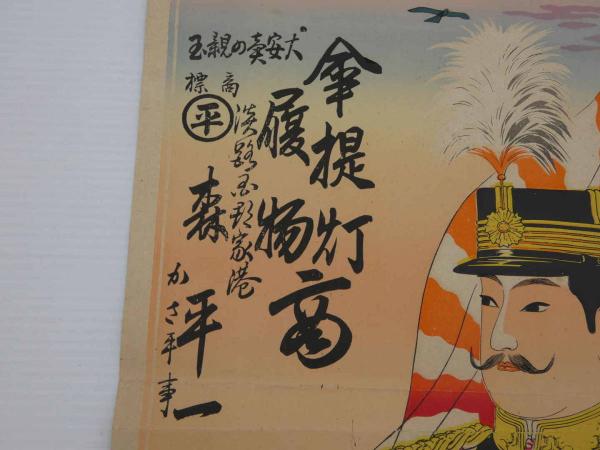 大安賣の親玉
傘提灯商
履物
商標
平
淡路国郡家港
森平一
かさ平事